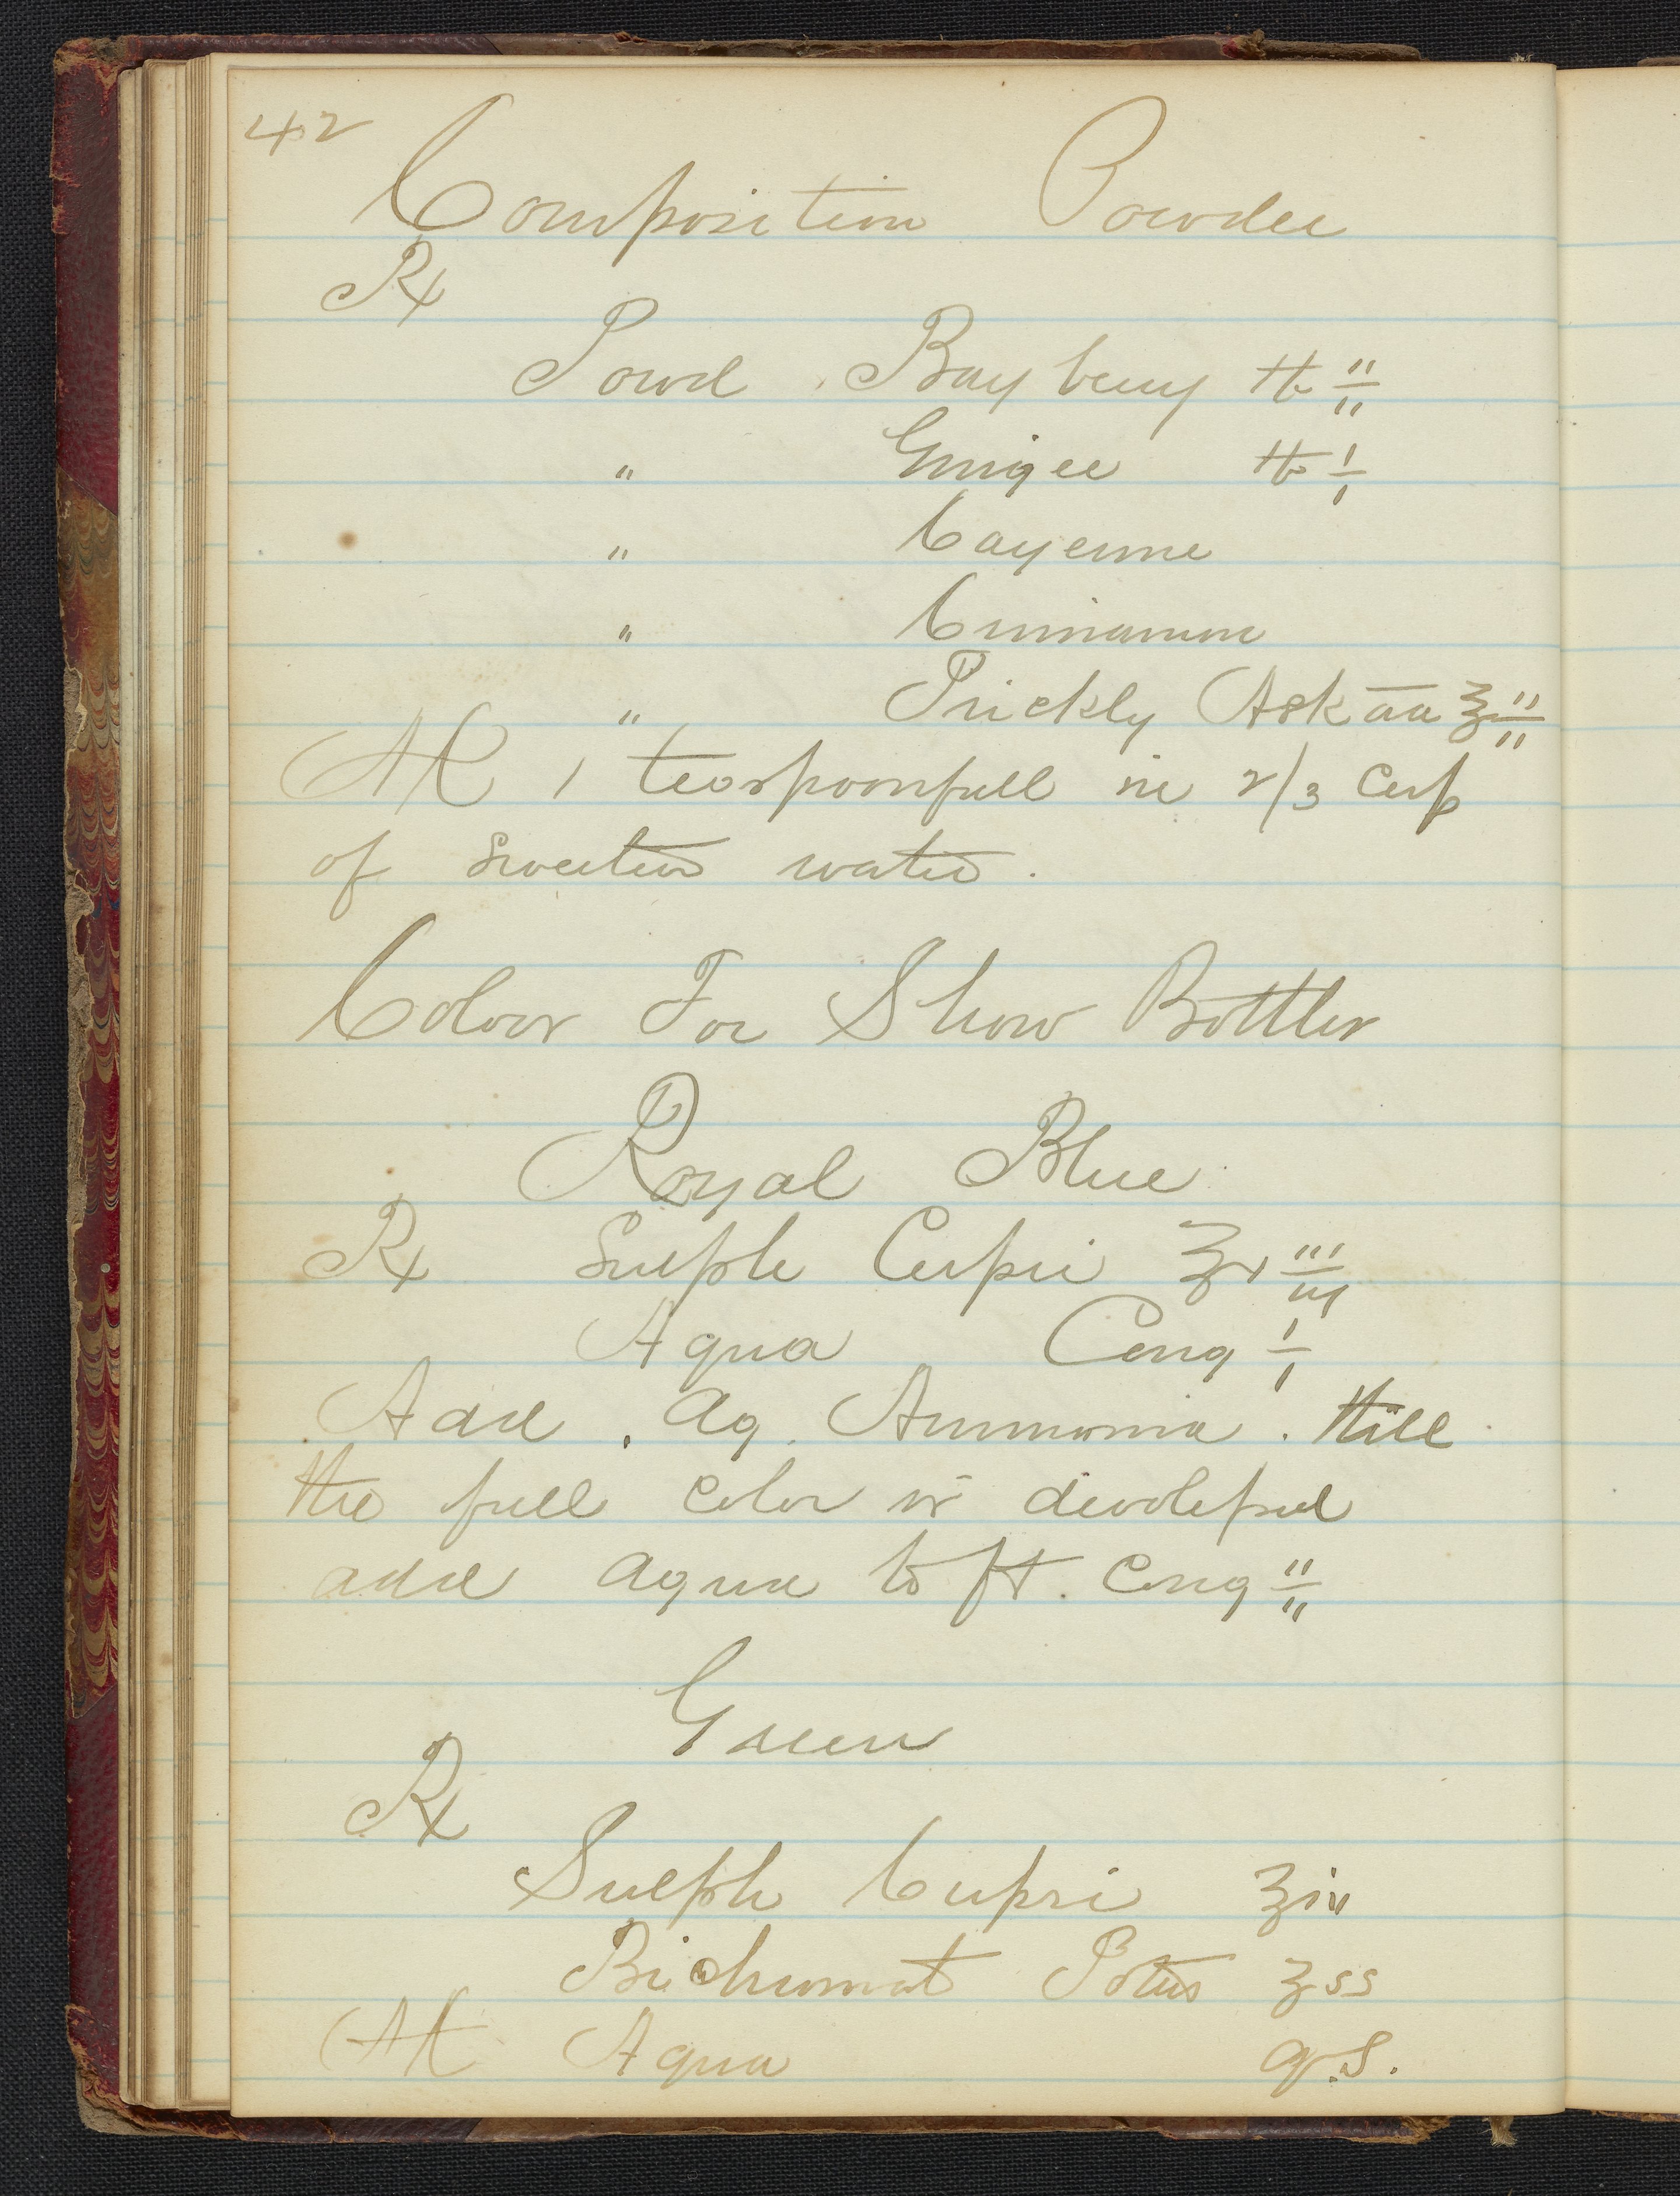 42
Composition Powder
℞
Powd Bayberry ℔ ii
" Ginger ℔ i
" Cayenne
" Cinnamon
" Prickly Ash āā ℥ ii
M 1 teaspoonfull in 2/3 cup
of sweeten water.
Color For Show Bottles
Royal Blue
℞ Sulph Cupri ℥ iii
Aqua Cong i
Add Aq Ammonia till
the full color is devoleped
add aqua to ft. Cong ii
Green
℞
Sulph Cupri
Bichromat Potas ℥ ss
M Aqua q.s.